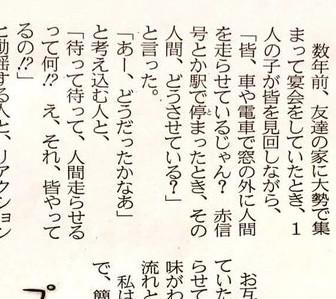 数年前、友達の家に大勢で集
まって宴会をしていたとき、1
人の子が皆を見回しながら、
「皆、車や電車で窓の外に人間
を走らせているじゃん？　赤信
号とか駅で停まったとき、その
人間、どうさせている？」
と言った。
「あー、どうだったかなあ」
と考え込む人と、
「待って待って、人間走らせる
って何!?　え、それ、皆やって
るの!?」
と動揺する人と、リアクション
お互
ていた
らせて
味がわ
流れと
私は
で、簡
プ